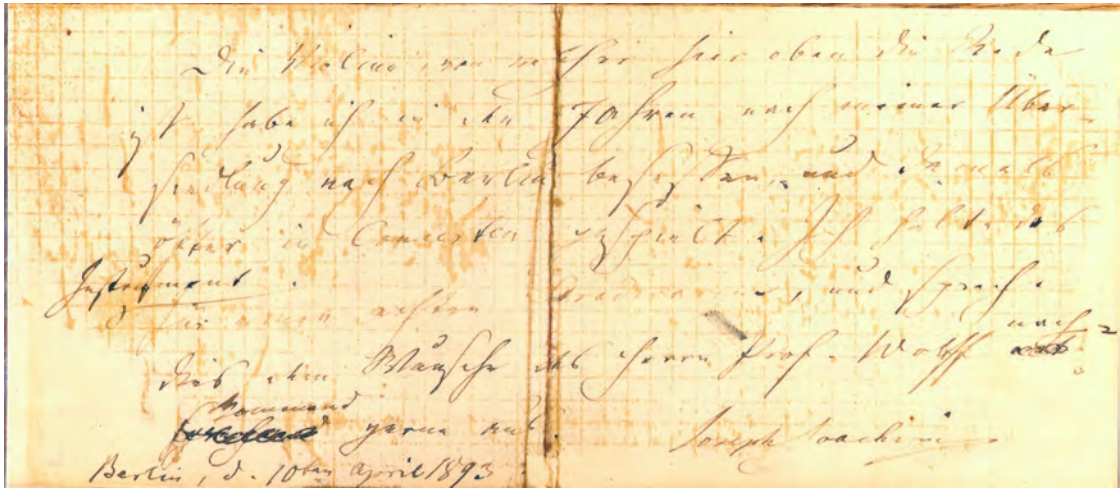 Die Violine, von welcher hier oben die Rede
ist, habe ich in den Jahren nach meiner Über-
siedlung nach Berlin besessen, und damals
öfter in Concerten gespielt. Ich halte das
Instrument
für einen ächten Stradivarius, und spreche
dies dem Wunsche des Herrn Prof. Wolff nach=
kommend gerne aus.
Joseph Joachim
Berlin, d. 10ten April 1893